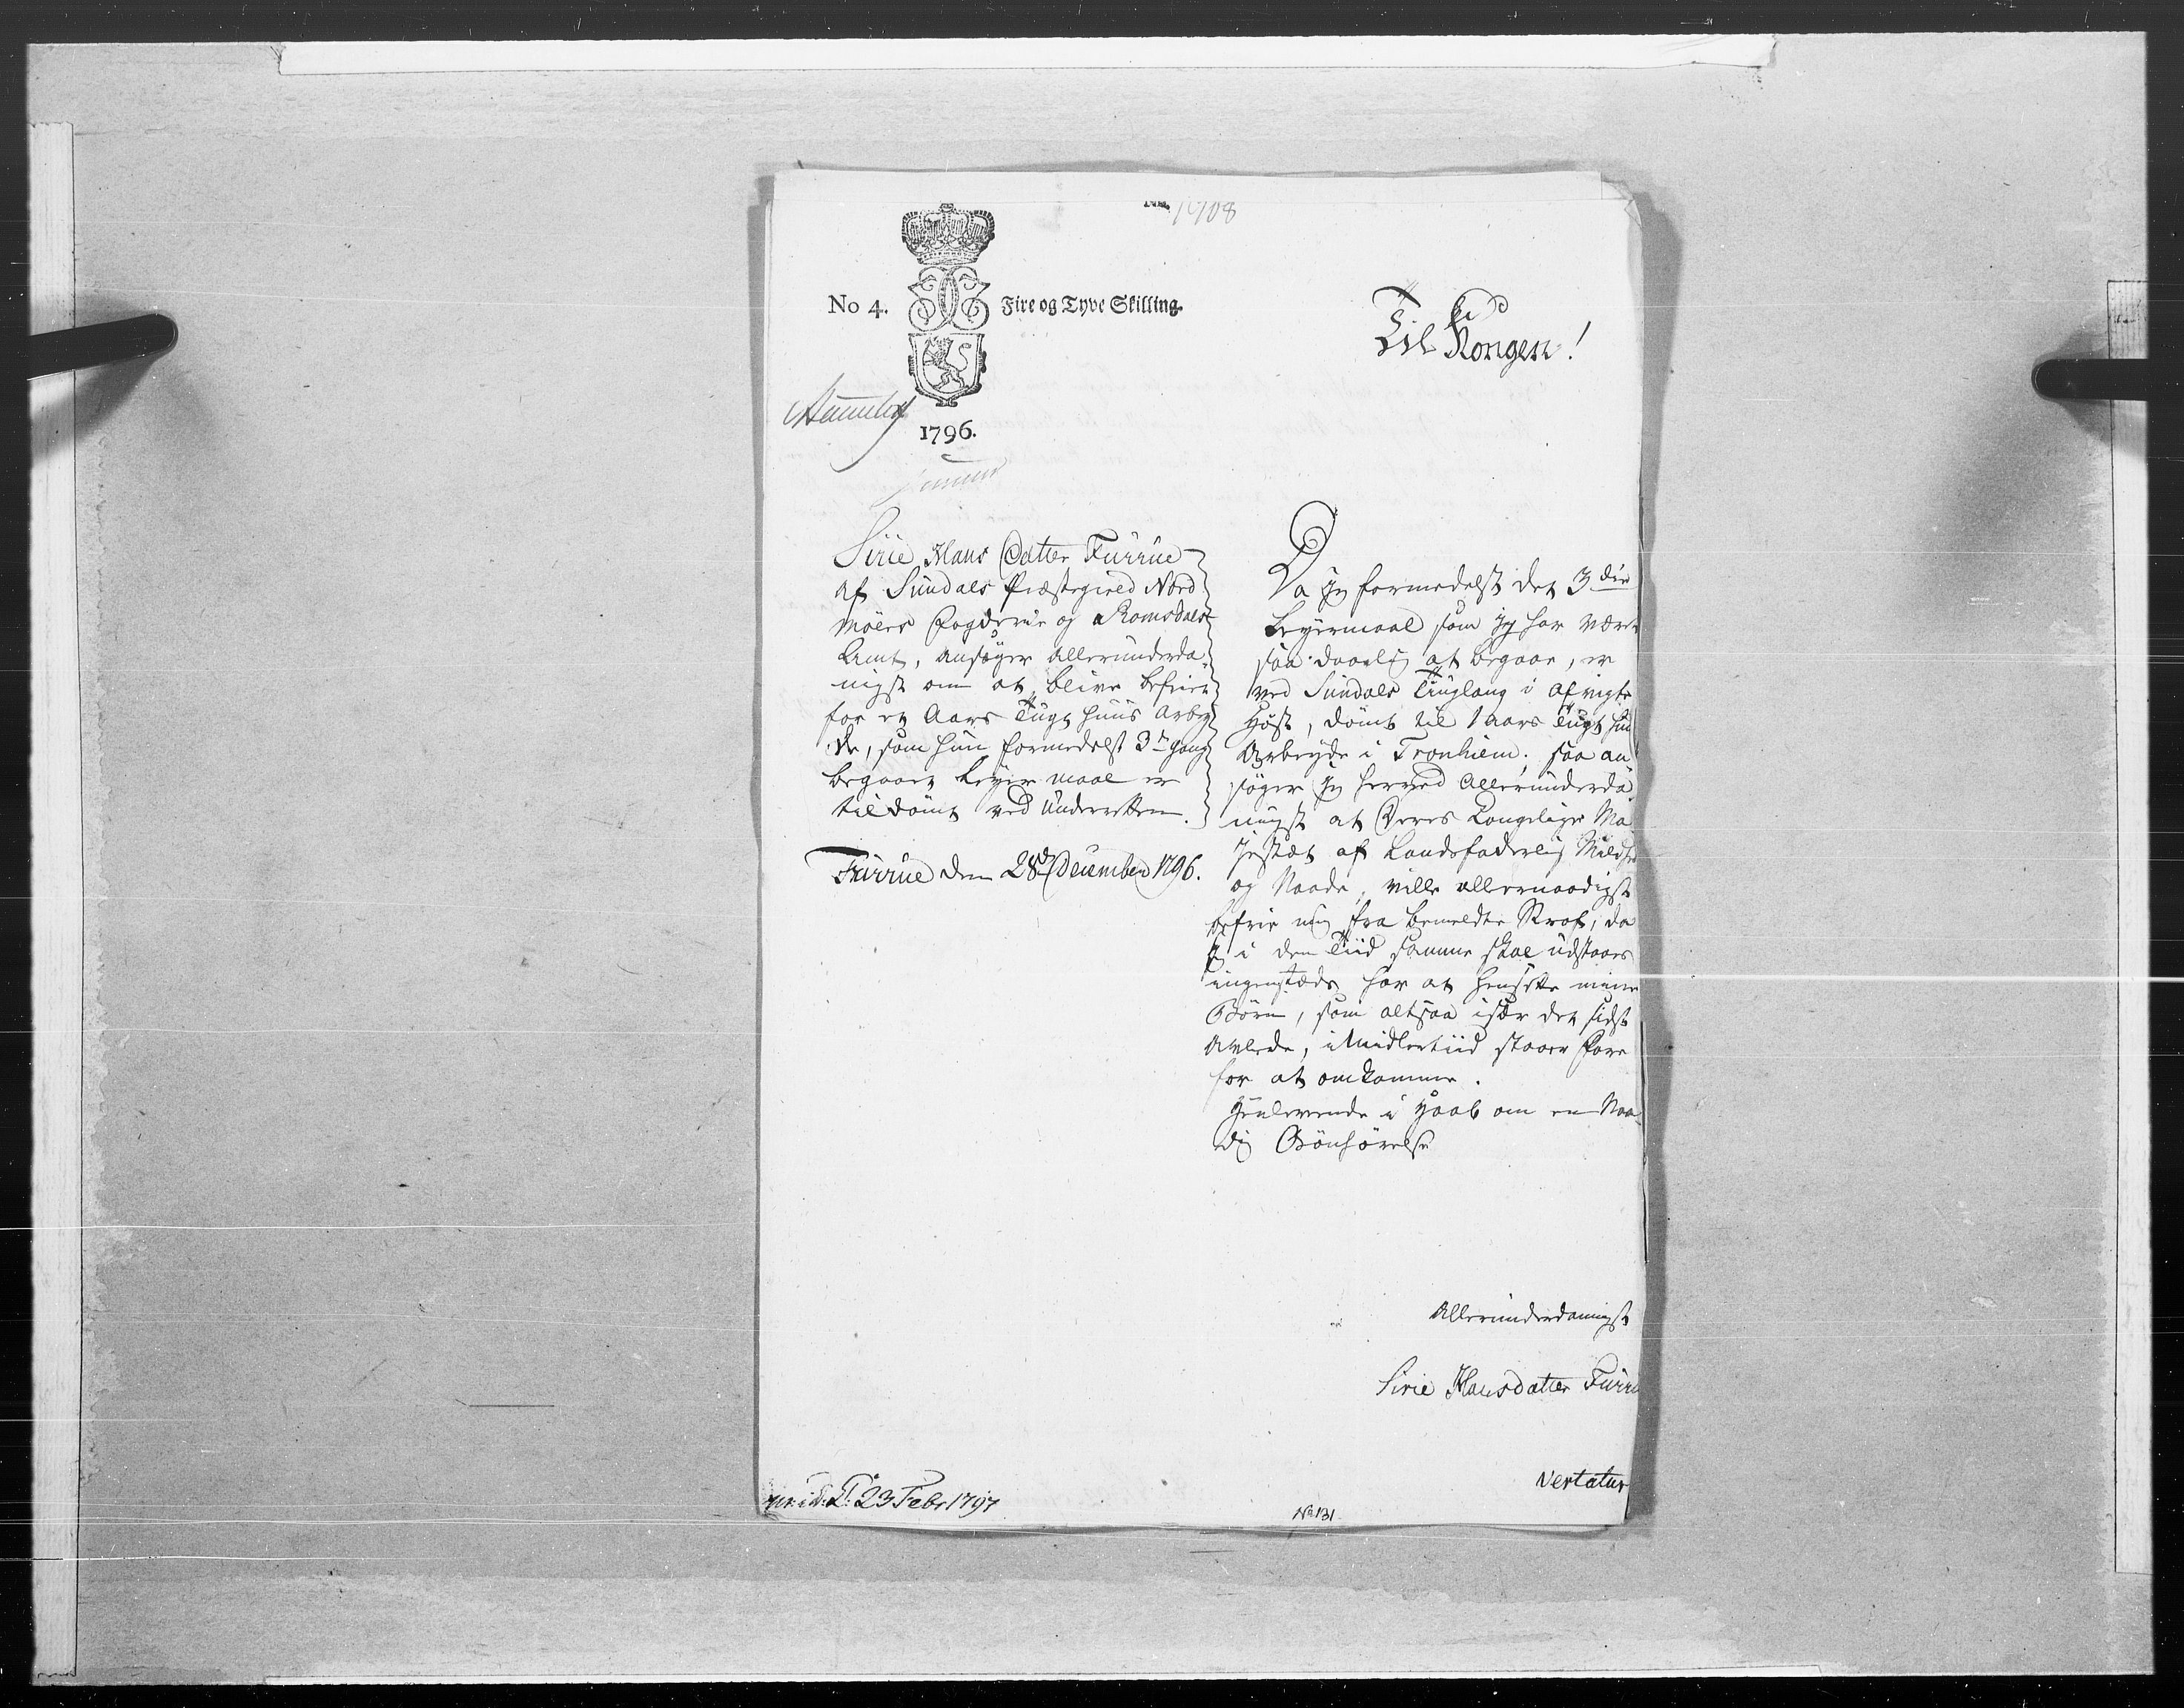 1708
No 4. Fire og Tyve Skilling.
1796.
Til Kongen!
Sirie Hans Datter Furrue
af Sundals Præstegield Nord
Møers Fogderie og Romsdals
Amt, ansøger allerunderda-
nigst om at blive befriet
for et Aars Tugt Huus Arbey-
de, som hun formedelst 3die gang
begaaet Leyermaal er
tildømt ved Underretten.
Furrue den 28de December 1796.
Da jeg formedelst det 3die
Leyermaal som jeg har været
saa daarlig at begaae, er
ved Sundals Tinglaug i afvigte
Høst, dømt til 1 Aars Tugt Huu
Arbeyde i Tronhiem; saa an
søger jeg herved Allerunderda
nigst at Deres Kongelige Ma
jestæt af Landsfaderlig Mildhed
og Naade, ville allernaadigst
befrie mig fra bemeldte Straf, da
jeg i den Tiid samme skal udstaaes
ingenstæds har at hensætte mine
Børn, som altsaa især det sidst
avlede, imidlertiid staaer Fare
for at omkomme.
Henlevende i Haab om en Naa
dig Bønhørelse
Allerunderdanigst
Sirie Hansdatter Furru
Vertatur
23 Febr 1797
No 131